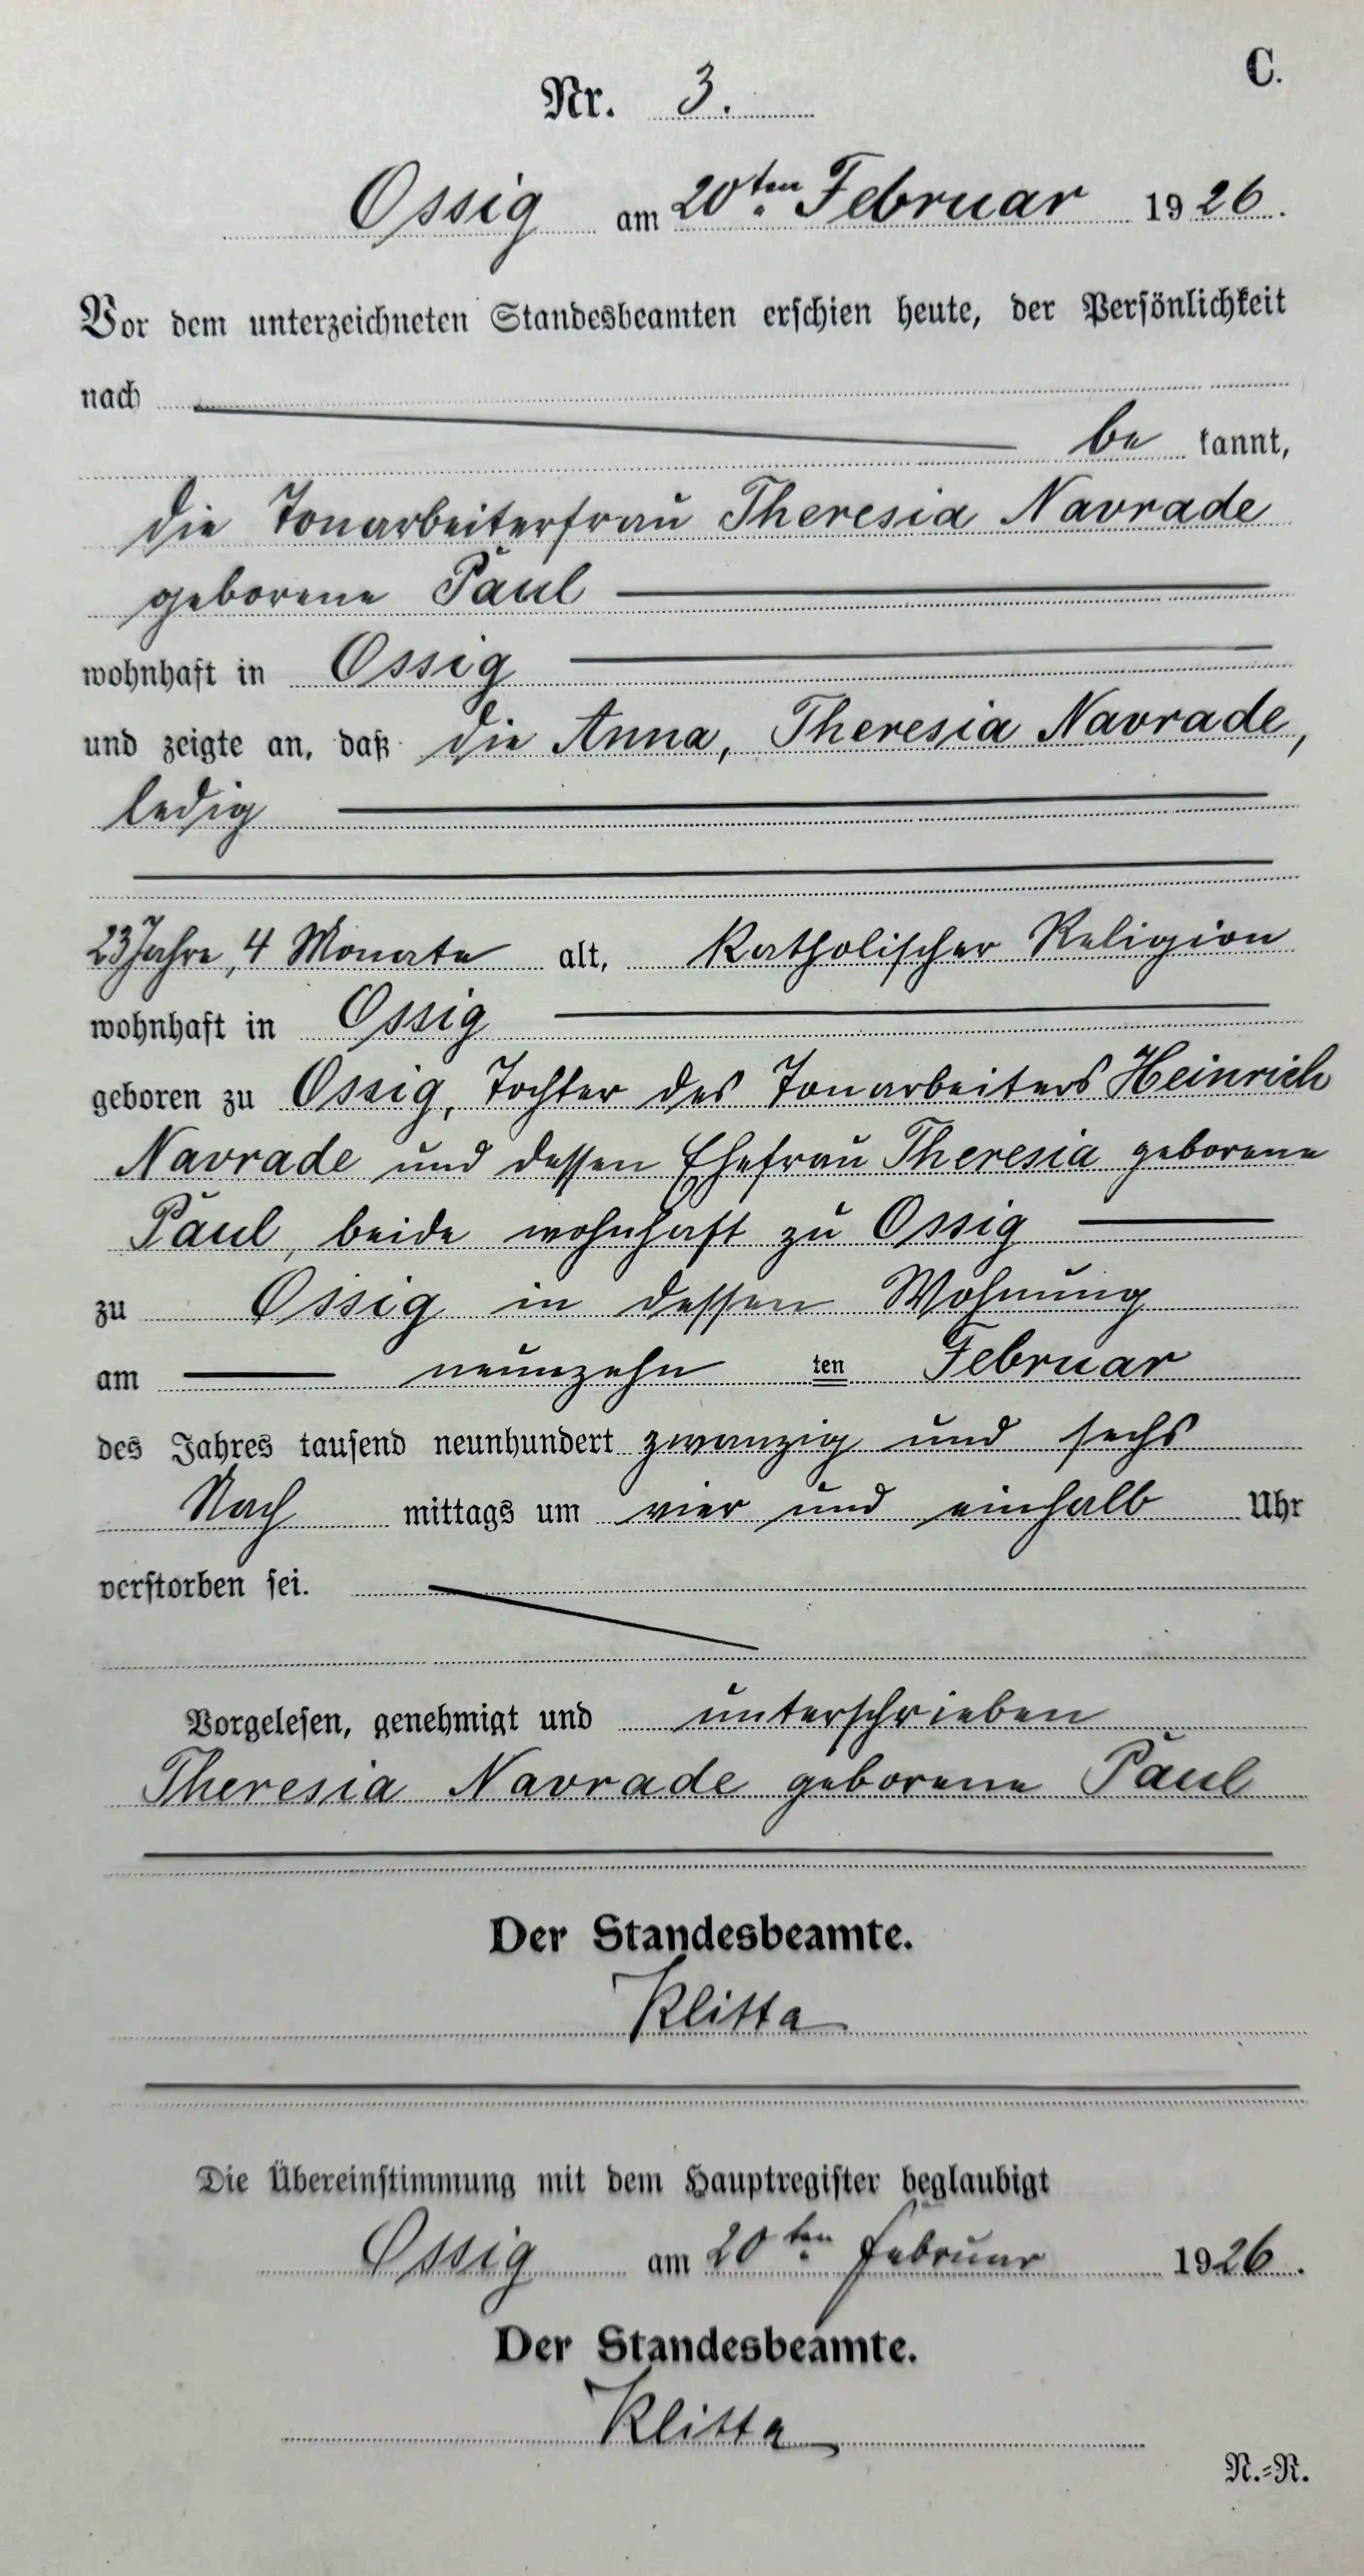 C.
Nr. 3.
Ossig am 20ten Februar 1926.
Vor dem unterzeichneten Standesbeamten erschien heute, der Persönlichkeit
nach
be kannt,
die Tonarbeiterfrau Theresia Navrade
geborene Paul
wohnhaft in Ossig
und zeigte an, daß die Anna, Theresia Navrade,
ledig
23 Jahre, 4 Monate alt, katholischer Religion
wohnhaft in Ossig
geboren zu Ossig, Tochter des Tonarbeiters Heinrich
Navrade und dessen Ehefrau Theresia geborene
Paul, beide wohnhaft zu Ossig
zu Ossig in dessen Wohnung
am neunzehn ten Februar
des Jahres tausend neunhundert zwanzig und sechs
Nach mittags um vier und einhalb Uhr
verstorben sei.
Vorgelesen, genehmigt und unterschrieben
Theresia Navrade geborene Paul
Der Standesbeamte.
Klitta
Die Übereinstimmung mit dem Hauptregister beglaubigt
Ossig am 20ten Februar 1926.
Der Standesbeamte.
Klitta
N.=R.